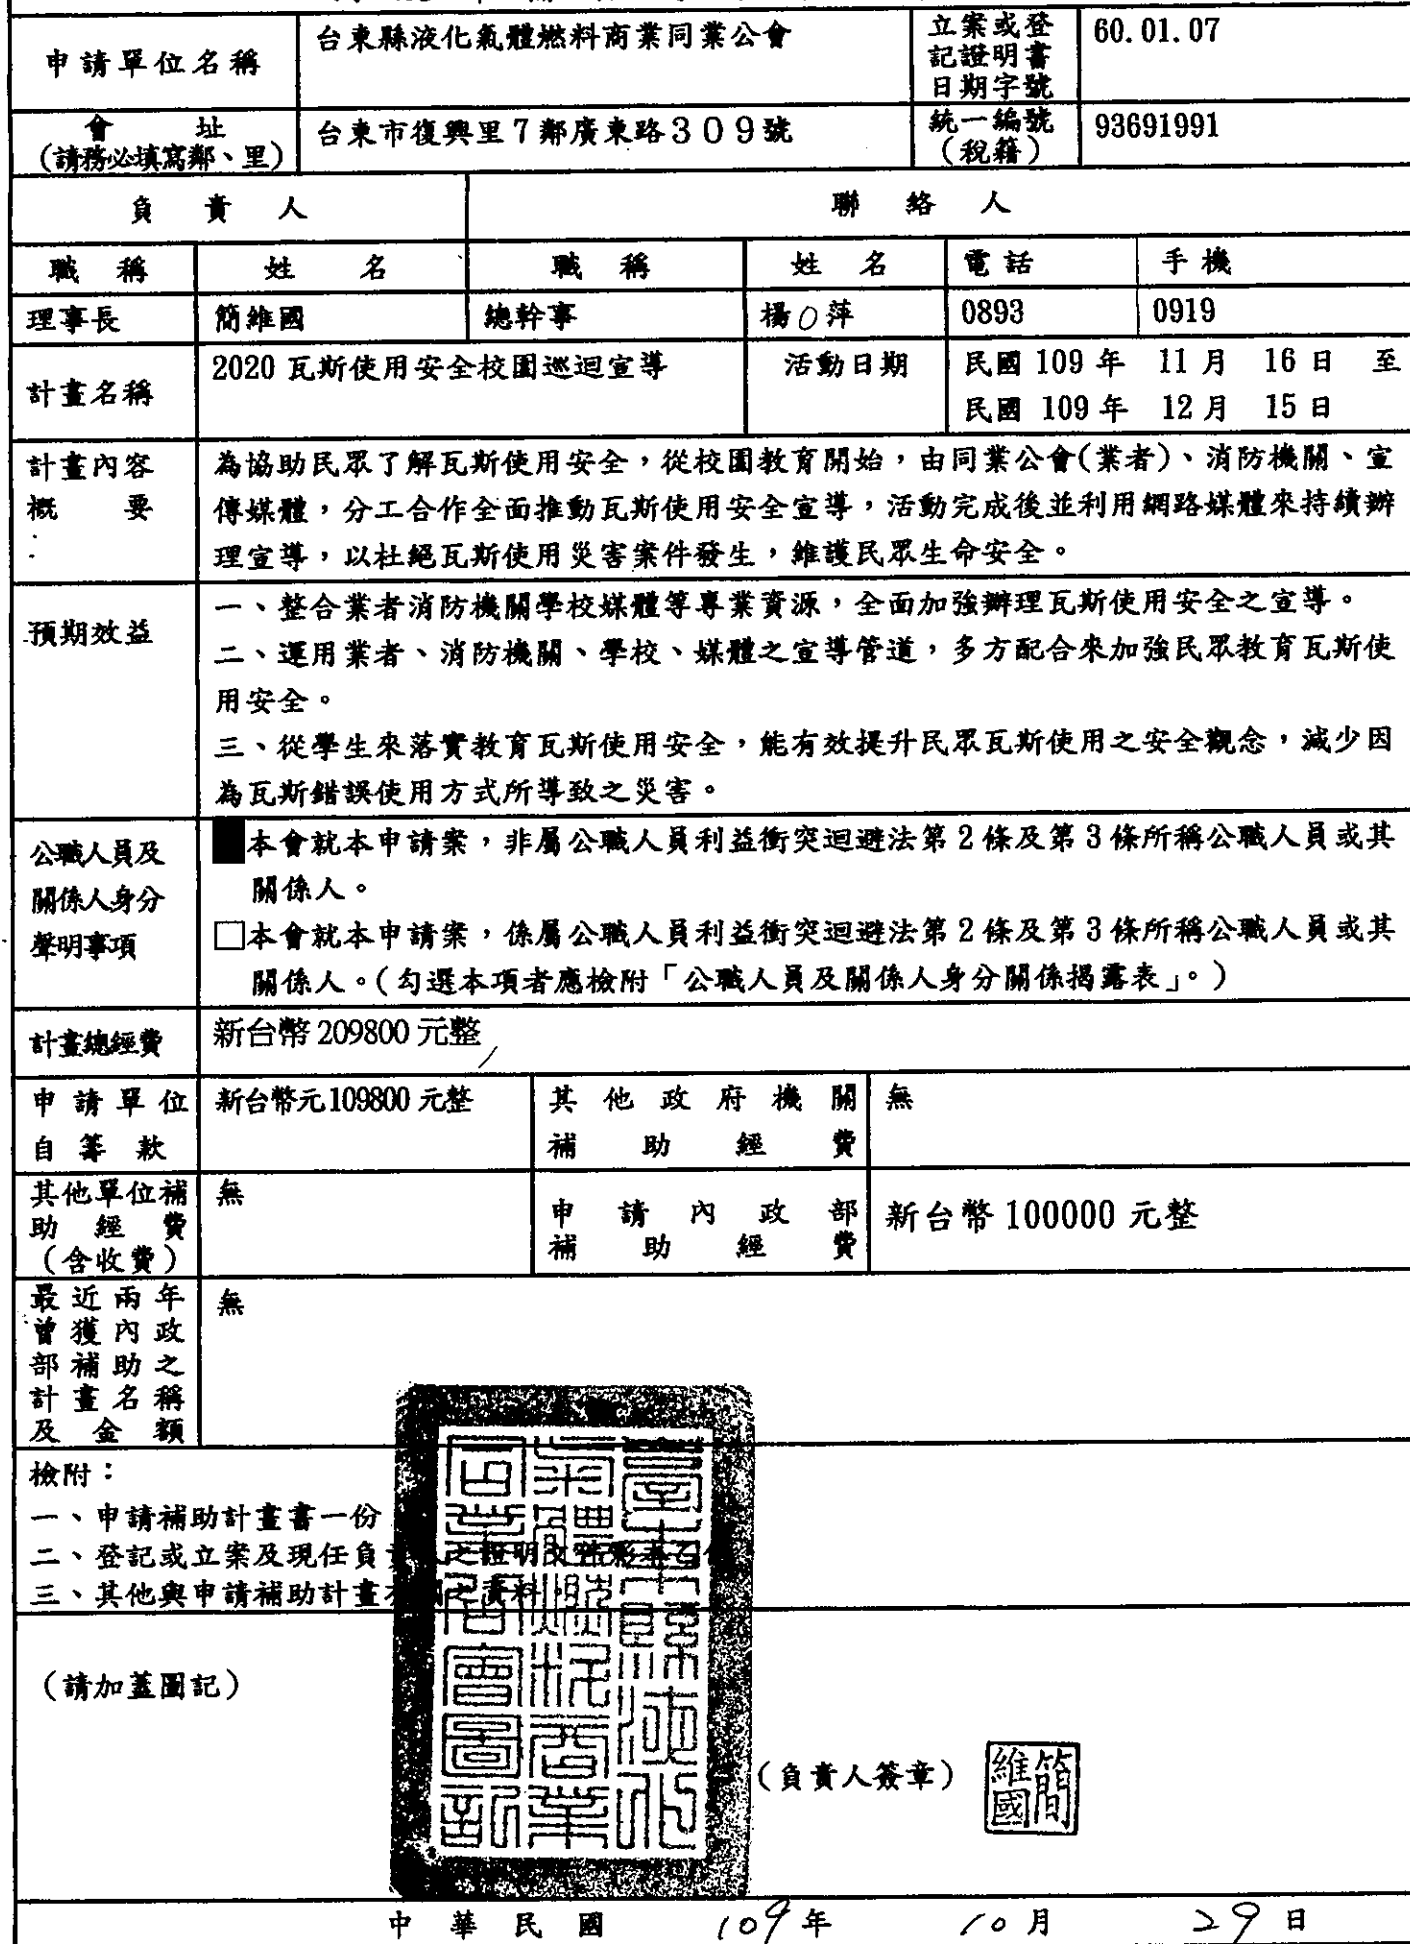 申請單位名稱
台東縣液化氣體燃料商業同業公會
立案或登
記證明書
日期字號
60.01.07
會址
(請務必填寫鄰、里)
台東市復興里7鄰廣東路309號
統一編號
(稅籍)
93691991
負責人
聯絡人
職稱
姓名
職稱
姓名
電話
手機
理事長
簡維國
總幹事
楊○萍
0893
0919
計畫名稱
2020瓦斯使用安全校園巡迴宣導
活動日期
民國109年 11月 16日 至
民國109年 12月 15日
計畫內容
概要
為協助民眾了解瓦斯使用安全,從校園教育開始,由同業公會(業者)、消防機關、宣
傳媒體,分工合作全面推動瓦斯使用安全宣導,活動完成後並利用網路媒體來持續辦
理宣導,以杜絕瓦斯使用災害案件發生,維護民眾生命安全。
預期效益
一、整合業者消防機關學校媒體等專業資源,全面加強辦理瓦斯使用安全之宣導。
二、運用業者、消防機關、學校、媒體之宣導管道,多方配合來加強民眾教育瓦斯使
用安全。
三、從學生來落實教育瓦斯使用安全,能有效提升民眾瓦斯使用之安全觀念,減少因
為瓦斯錯誤使用方式所導致之災害。
公職人員及
關係人身分
聲明事項
■本會就本申請案,非屬公職人員利益衝突迴避法第2條及第3條所稱公職人員或其
關係人。
□本會就本申請案,係屬公職人員利益衝突迴避法第2條及第3條所稱公職人員或其
關係人。(勾選本項者應檢附「公職人員及關係人身分關係揭露表」。)
計畫總經費
新台幣209800元整
申請單位
自籌款
新台幣元109800元整
其他政府機關
補助經費
無
其他單位補
助經費
(含收費)
無
申請內政部
補助經費
新台幣100000元整
最近兩年
曾獲內政
部補助之
計畫名稱
及金額
無
檢附:
一、申請補助計畫書一份
二、登記或立案及現任負責人之證明文件影本
三、其他與申請補助計畫有關之資料
(請加蓋圖記)
臺東縣液化
氣體燃料商業
同業公會圖記
(負責人簽章)
簡維國
中華民國 109年 10月 29日